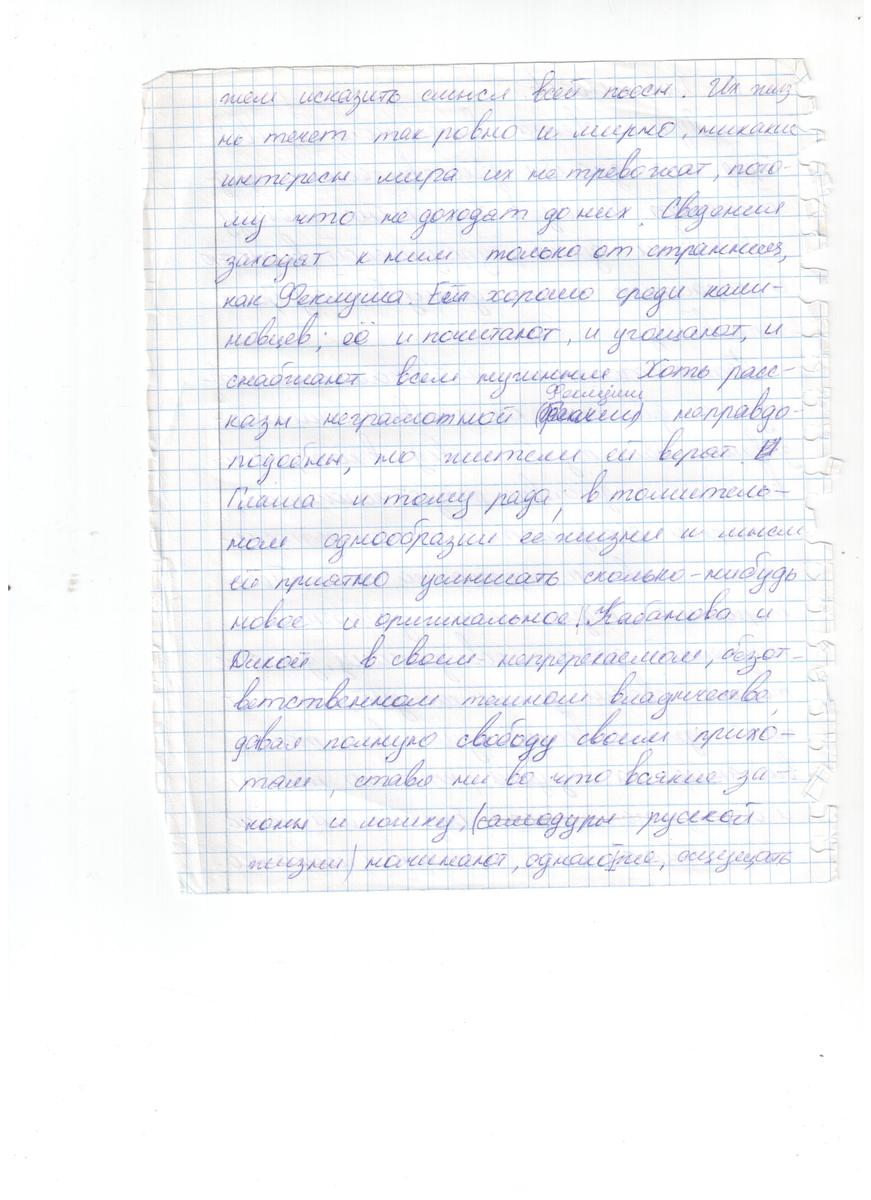 жем исказить смысл всей пьесы. Их жиз
нь течет так ровно и мирно, никакие
интересы мира их не тревожат, пото-
му что не доходят до них. Сведения
заходят к ним только от странниц,
как Феклуша. Ей хорошо среди кали-
новцев; её и почитают, и угощают, и
снабжают всем нужным. Хоть расс-
Феклуши
казы неграмотной неправдо-
подобны, но жители ей верят.
Глаша и тому рада; в томитель-
ном однообразии ее жизни и мысли
ей приятно услышать сколько-нибудь
новое и оригинальное. Кабанова и
Дикой в своем непререкаемом, безот-
ветственном темном владычестве,
давая полную свободу своим прихо-
там, ставя ни во что всякие за-
коны и логику, (самодуры русской
жизни) начинают, однако же, ощущать